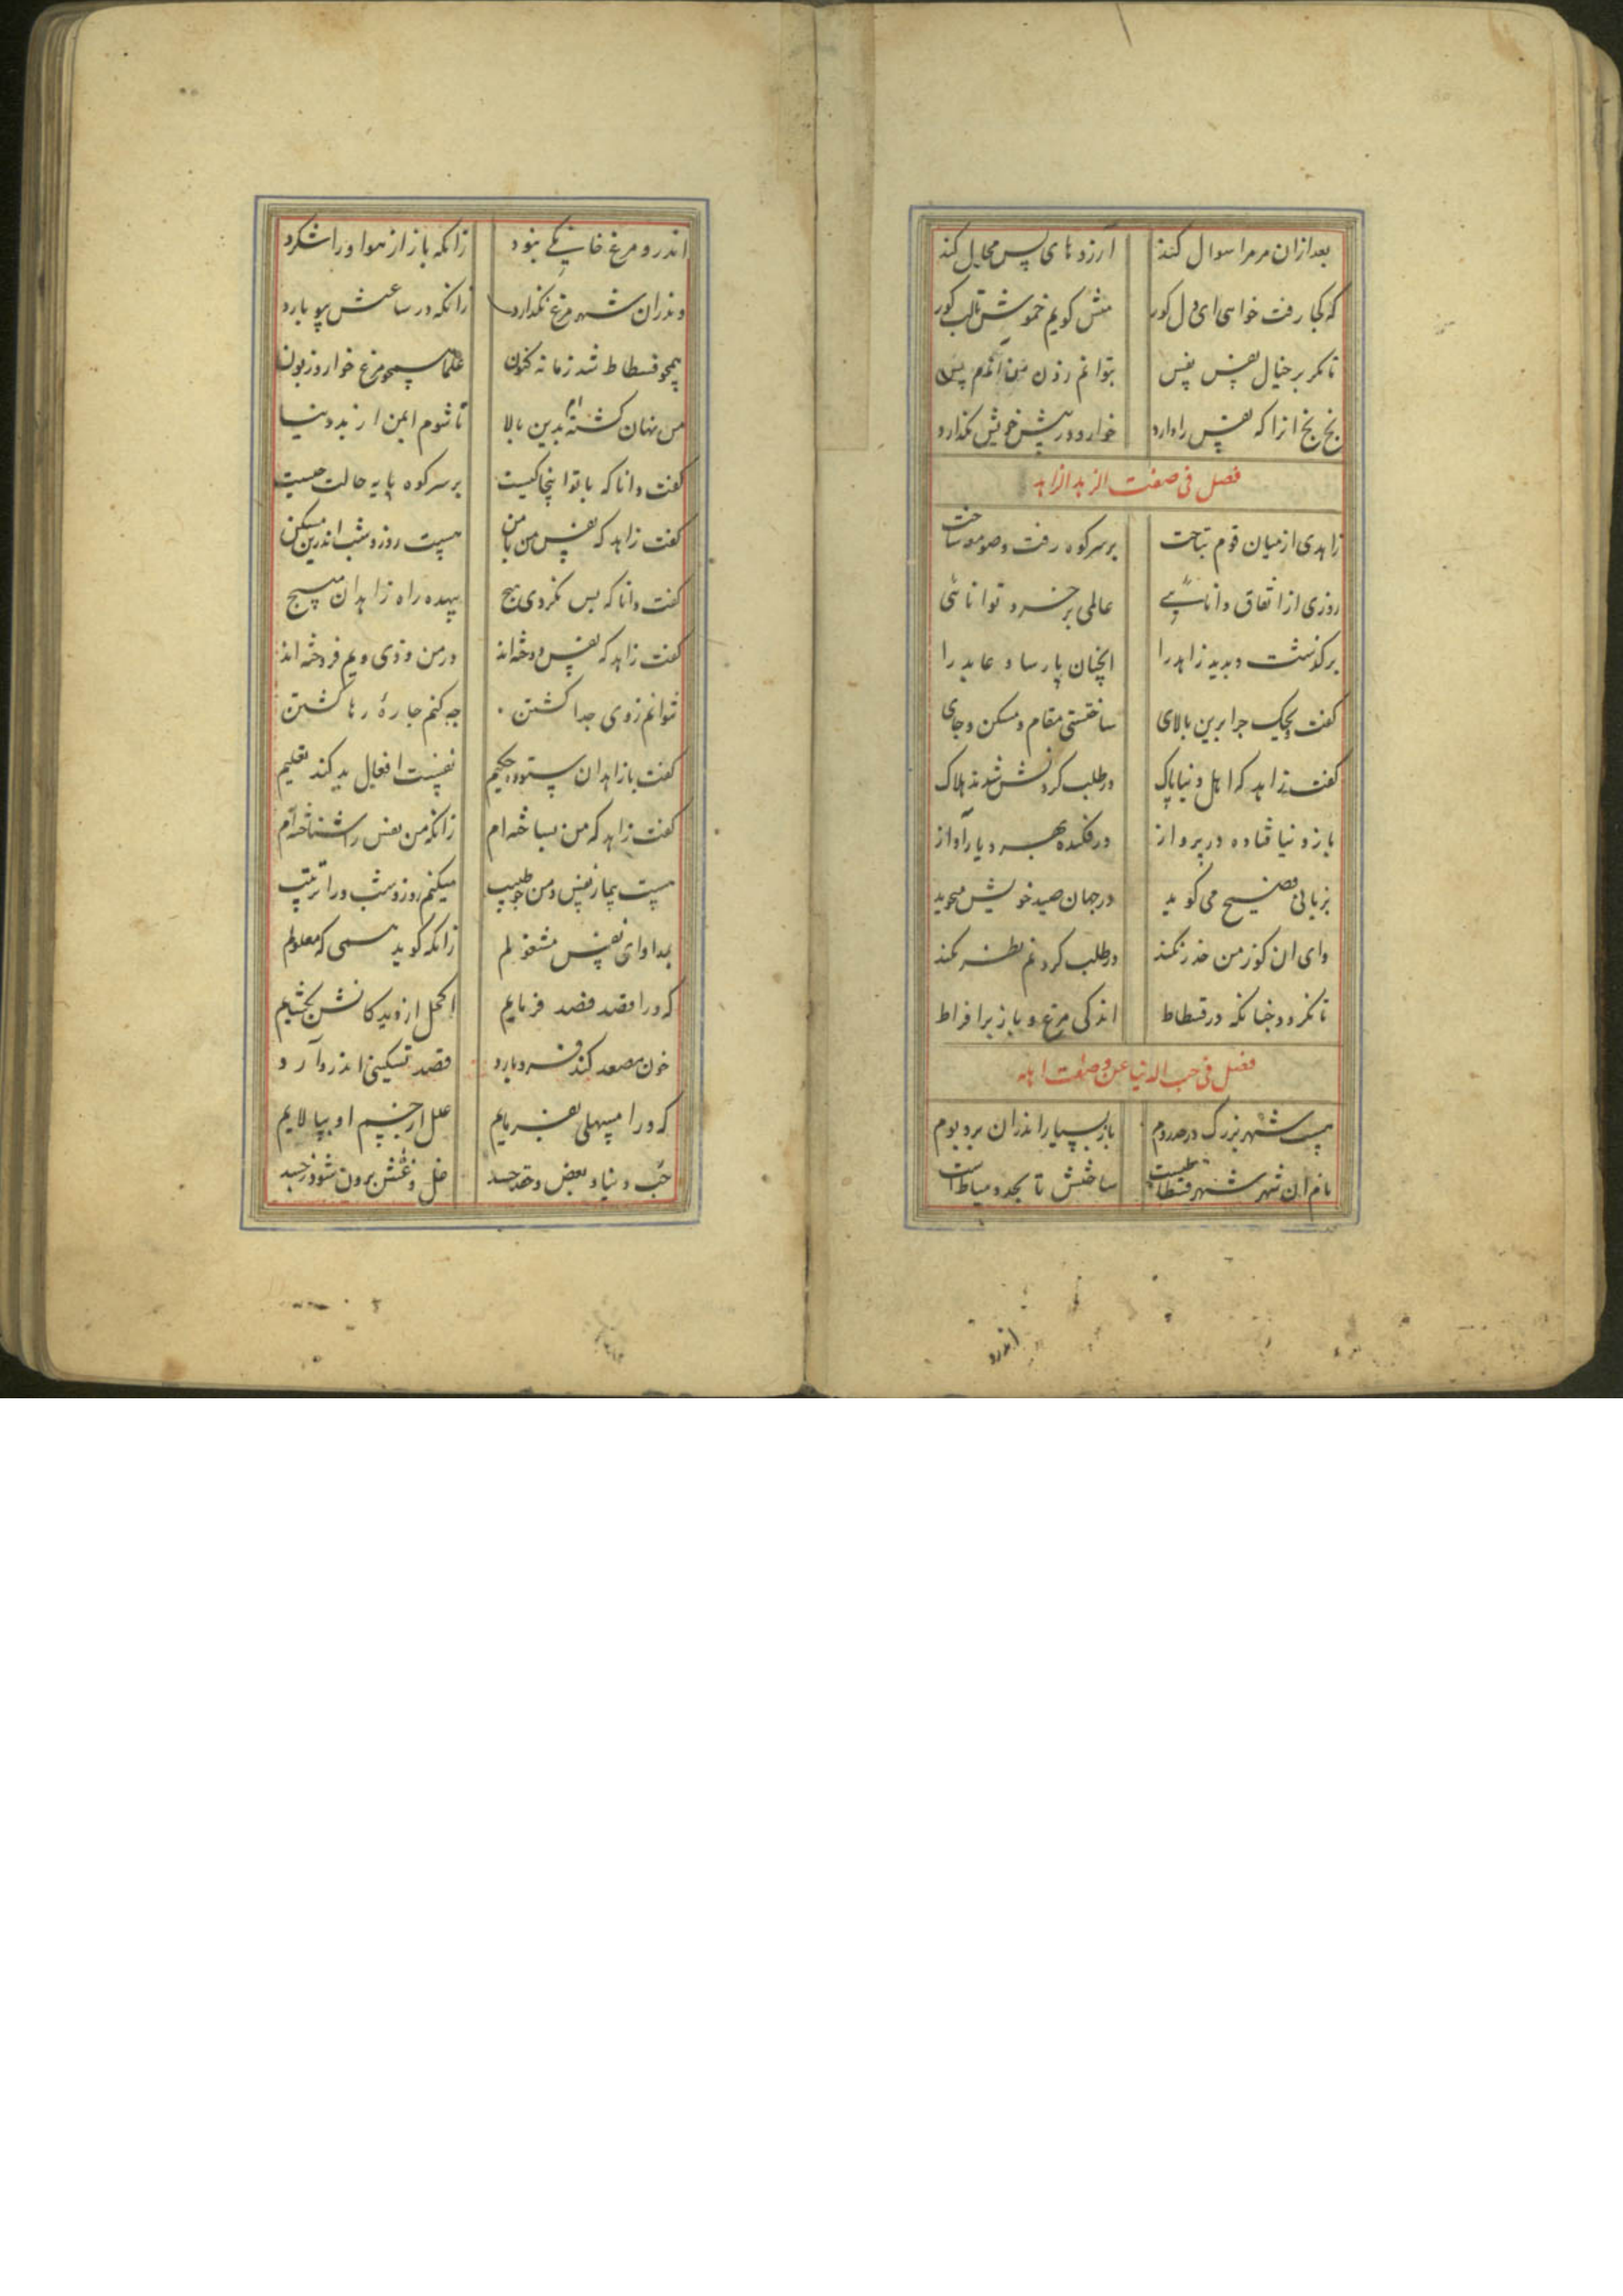 بعد ازان مر مرا سوال کند آرزوهای پس محال کند
که کجا رفت خواهی ای دل کور منش کویم خموش تا لب کور
تا مکر بر خیال نفس نفس بتوانم زدن من آندم پس
بخ بخ انرا که نفس را دارد خوار و در پیش خویش نکذارد
فصل فی صفت الزهد الزاهد
زاهدی از میان قوم بتاخت بر سر کوه رفت و صومعه ساخت
روزی از اتفاق دانایی عالمی بر خرد توانائی
برکذشت و بدید زاهد را انچنان پارسا و عابد را
کفت ویحک جرا برین بالای ساختستی مقام و مسکن و جای
کفت زاهد که اهل دنیا پاک در طلب کردنش شدند هلاک
باز دنیا فتاده در پرواز در فکنده بهر دیار آواز
بزبانی فصیح می کوید در جهان صید خویش میجوید
وای ان کوز من حذر نکند در طلب کردنم نظر نکند
تا نکردد جنانکه در فسطاط اندکی مرغ و باز بر افراط
فصل فی حب الدنیا عن وصفت اهله
هست شهر بزرک در حد روم باز بسیار اندران بر و بوم
نام ان شهر شهر فسطاطست ساختش تا بحد دمیاط است
اندرو مرغ خانیکی نبود زانکه باز از هوا ورا شکرد
وندران شهر مرغ نکذارد زانکه در ساعتش بیوبارد
همچو فسطاط شد زمانه کنون علما همچو مرغ خوار و زبون
من نهان کشته ام بدین بالا تا شوم ایمن از بد دنیا
کفت دانا که با تو اینجا کیست بر سر کوه پایه حالت جیست
کفت زاهد که نفس من با من هست روز و شب اندرین مسکن
کفت دانا که بس نکردی هیچ بیهده راه زاهدان مپسیج
کفت زاهد که نفس دوخته اند در من و زی ویم فروخته اند
نتوانم زوی جدا کشتن جه کنم جارهٔ رها کشتن
کفت با زاهد ان ستوده حکیم نفست افعال بد کند تعلیم
کفت زاهد که من بساخته ام زانکه من نفس را شناخته ام
هست بیمار نفس و من جو طبیب میکنم روز و شب ورا ترتیب
بمداوای نفس مشغولم زانکه کوید همی که معلولم
که ورا قصد فصد فرمایم اکحل از دیدکانش بکشایم
خون مصعد کند فرو بارد فصد تسکینی اندر و آرد
که ورا مسهلی بفرمایم علل از جسم او بپالایم
حب دنیا و بغض و حقد و حسد غل و غشش برون شود ز جسد
اندرو